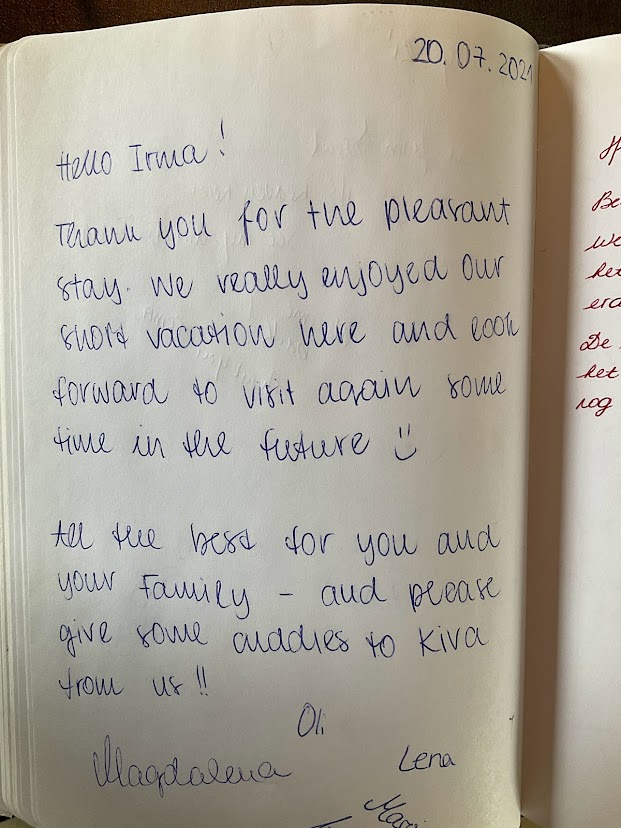 20.07.2021
Hello Irma!
Thank you for the pleasant
stay. We really enjoyed our
short vacation here and look
forward to visit again some
time in the future :)
All the best for you and
your Family – and please
give some cuddles to Kiva
from us!!
Oli
Magdalena
Lena
Be
we
het
De
het
nog